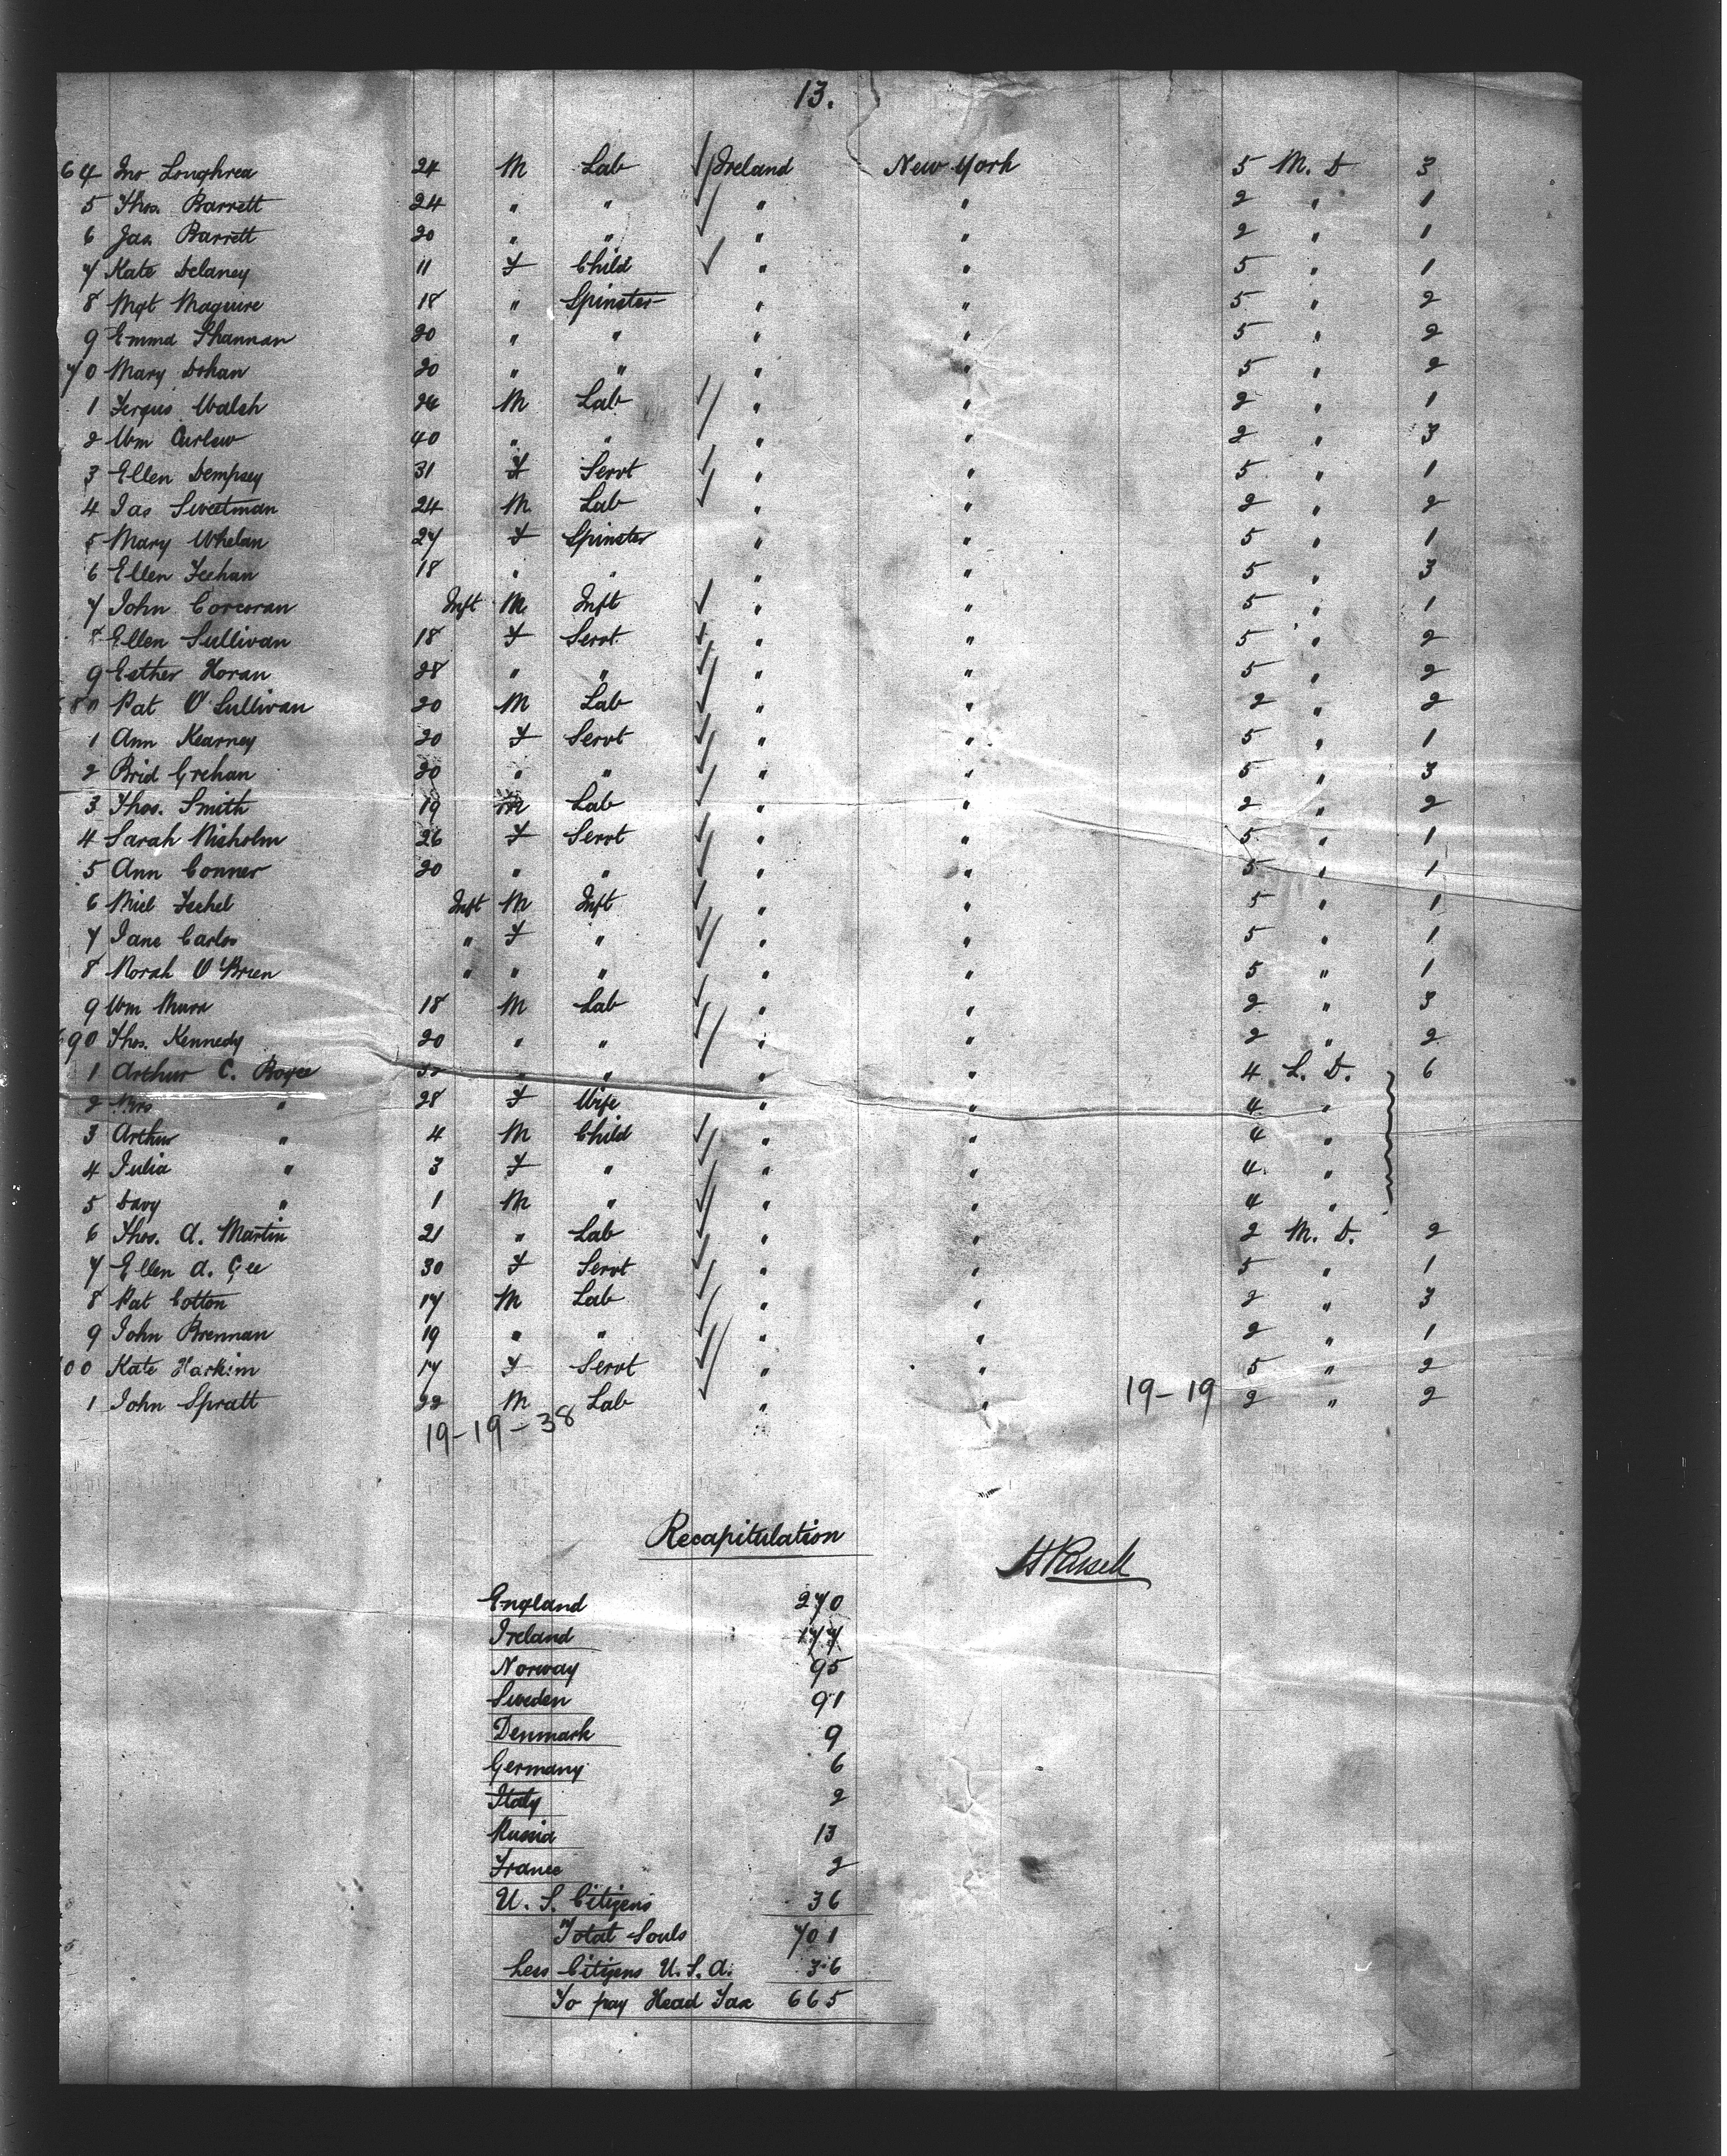 13.
64 Jno Loughrea 24 M Lab Ireland New York 5 M. D 3
5 Thos. Barrett 24 " " " " 2 " 1
6 Jas. Barrett 20 " " " " 2 " 1
7 Kate Delaney 11 F Child " " 5 " 1
8 Mgt Maguire 18 " Spinster " " 5 " 2
9 Emma Shannan 20 " " " " 5 " 2
70 Mary Dohan 20 " " " " 5 " 2
1 Fergus Walsh 24 M Lab " " 2 " 1
2 Wm Curlew 40 " " " " 2 " 3
3 Ellen Dempsey 31 F Servt " " 5 " 1
4 Jas Sweetman 24 M Lab " " 2 " 2
5 Mary Whelan 27 F Spinster " " 5 " 1
6 Ellen Feehan 18 " " " " 5 " 3
7 John Corcoran Inft M Inft " " 5 " 1
8 Ellen Sullivan 18 F Servt " " 5 " 2
9 Esther Horan 28 " " " " 5 " 2
80 Pat O'Sullivan 20 M Lab " " 2 " 2
1 Ann Kearney 20 F Servt " " 5 " 1
2 Brid Grehan 20 " " " " 5 " 3
3 Thos. Smith 19 M Lab " " 2 " 2
4 Sarah Nisholm 26 F Servt " " 5 " 1
5 Ann Conner 20 " " " " 5 " 1
6 Micl Feehel Inft M Inft " " 5 " 1
7 Jane Carlos " F " " " 5 " 1
8 Norah O'Brien " " " " " 5 " 1
9 Wm 18 M Lab " " 2 " 3
690 Thos. Kennedy 20 " " " " 2 " 2
1 Arthur C. Boyce " " " " 4 L. D. 6
2 Mrs " 28 F Wife " " 4 "
3 Arthur " 4 M Child " " 4 "
4 Julia " 3 F " " " 4 "
5 Davy " 1 M " " " 4 "
6 Thos. A. Martin 21 " Lab " " 2 M. D. 2
7 Ellen A. Gee 30 F Servt " " 5 " 1
8 Pat Cotton 17 M Lab " " 2 " 3
9 John Brennan 19 " " " " 2 " 1
00 Kate Harkim 17 F Servt " " 5 " 2
1 John Spratt 22 M Lab " " 19-19 2 " 2
19-19-38
Recapitulation
England 270
Ireland 177
Norway 95
Sweden 91
Denmark 9
Germany 6
Italy 2
Russia 13
France 2
U. S. Citizens 36
Total Souls 701
Less Citizens U. S. A. 36
To pay Head Tax 665